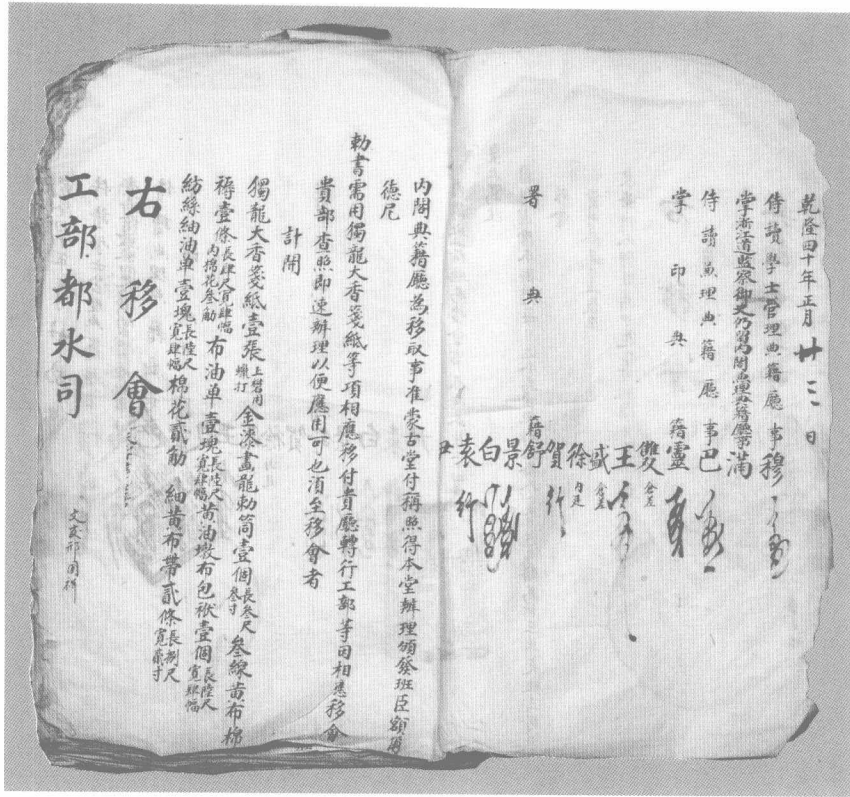 乾隆四十年正月 廿三 日
侍讀學士管理典籍廳事穆
掌浙江道監察御史仍留內閣兼理典籍廳事滿
侍讀兼理典籍廳事巴
掌印典籍靈
雙 倉差
王
盛 倉差
徐 內廷
賀 行
署典籍舒
景
白
袁 行
內閣典籍廳為移取事准蒙古堂付稱照得本堂辦理頒發班臣額爾
德尼
勅書需用獨龍大香箋紙等項相應移付貴廳轉行工部等因相應移會
貴部查照即速辦理以便應用可也須至移會者
計開
獨龍大香箋紙壹張上礬用蠟打 金漆畫龍勅筒壹個長叁尺叁寸 叁線黃布棉
褥壹條長肆尺寬肆幅內棉花叁觔 布油单壹塊長陸尺寬肆幅 黃油墩布包袱壹個長陸尺寬肆幅
紡絲紬油单壹塊長陸尺寬肆幅 棉花貳觔 紬黃布帶貳條長捌尺寬貳寸
右移會
工部都水司